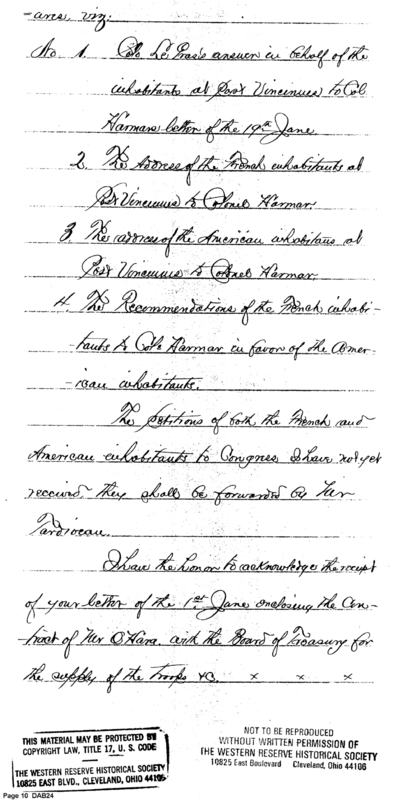 -ances, viz:
No 1. Colo Le Gras's answer in behalf of the
inhabitants at Post Vincennes to Col.
Harmars letter of the 19th June
2. The Address of the French inhabitants at
Post Vincennes to Colonel Harmar.
3. The address of the American inhabitans at
Post Vincennes to Colonel Harmar
4. The Recommendations of the French inhabi-
-tants to Colo Harmar in favor of the Amer-
-ican inhabitants.
The petitions of both the French and
American inhabitants to Congress I have not yet
received. they shall be forwarded by Mr
Tardiveau.
I have the honor to acknowledge the receipt
of your letter of the 1st June enclosing the Con-
-tract of Mr O'Hara with the Board of Treasury for
the supply of the troops &c. x x x
THIS MATERIAL MAY BE PROTECTED BY
COPYRIGHT LAW, TITLE 17, U. S. CODE
THE WESTERN RESERVE HISTORICAL SOCIETY
10825 EAST BLVD., CLEVELAND, OHIO 44106
NOT TO BE REPRODUCED
WITHOUT WRITTEN PERMISSION OF
THE WESTERN RESERVE HISTORICAL SOCIETY
10825 East Boulevard Cleveland, Ohio 44106
Page 10 DAB24